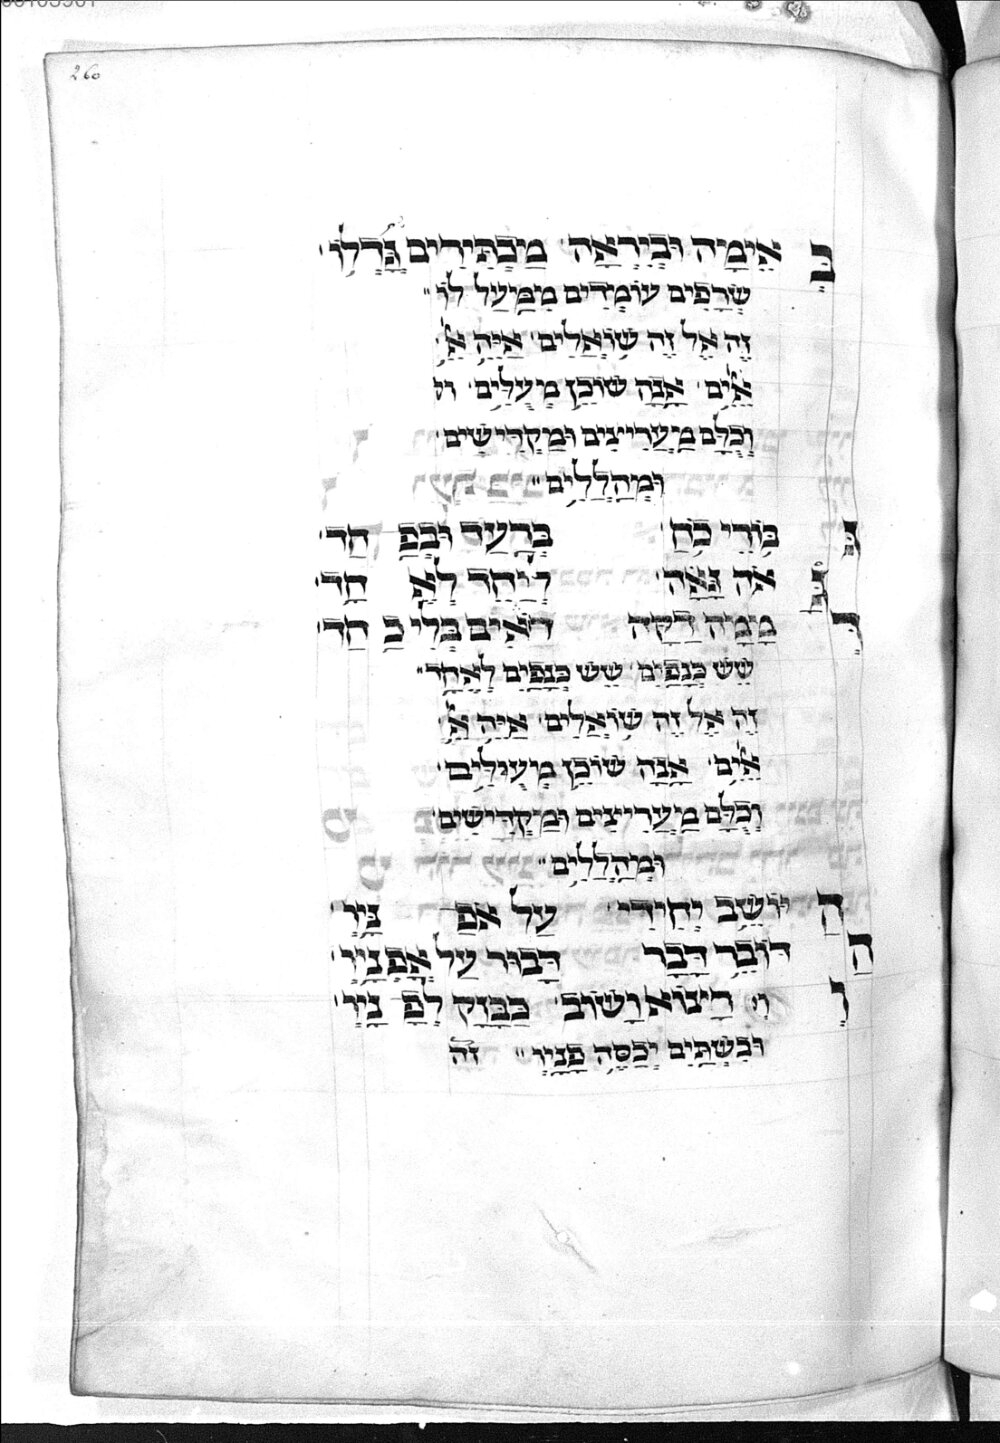 260
בְּ אֵימָה וּבְיִרְאָה מַכְתִּירִים גָּדְלוֹ
שְׂרָפִים עוֹמְדִים מִמַּעַל לוֹ
זֶה אֶל זֶה שׁוֹאֲלִים אַיֵּה אֵ
אֵלִים אָנָה שׁוֹכֵן מְעָלִים וק
וְכֻלָּם מַעֲרִיצִים וּמַקְדִּישִׁים
וּמְהַלְלִים
גִּ בּוֹרֵי כֹחַ בְּרַעַד וּבְפַ חַד
גֹּ אֵה גֵּאָה לְיַחֵד לְאֵ חָד
דְּ מָמָה דַקָּה דּוֹאִים בְּלִי כַ חַד
שֵׁשׁ כְּנָפַיִם שֵׁשׁ כְּנָפַיִם לְאֶחָד
זֶה אֶל זֶה שׁוֹאֲלִים אַיֵּה אֵ
אֵלִים אָנָה שׁוֹכֵן מְעוּלִּים
וְכֻלָּם מַעֲרִיצִים וּמַקְדִּישִׁים
וּמְהַלְלִים
הַ יּוֹשֵׁב יְחִידִי עַל אַפַּ נָּיו
הַ דּוֹבֵר דָּבָר דָּבוּר עַל אָפְנָיו
וְ הַ רָצוֹא וָשׁוֹב כַּבָּזָק לְפָ נָיו
וּבִשְׁתַּיִם יְכַסֶּה פָנָיו זה